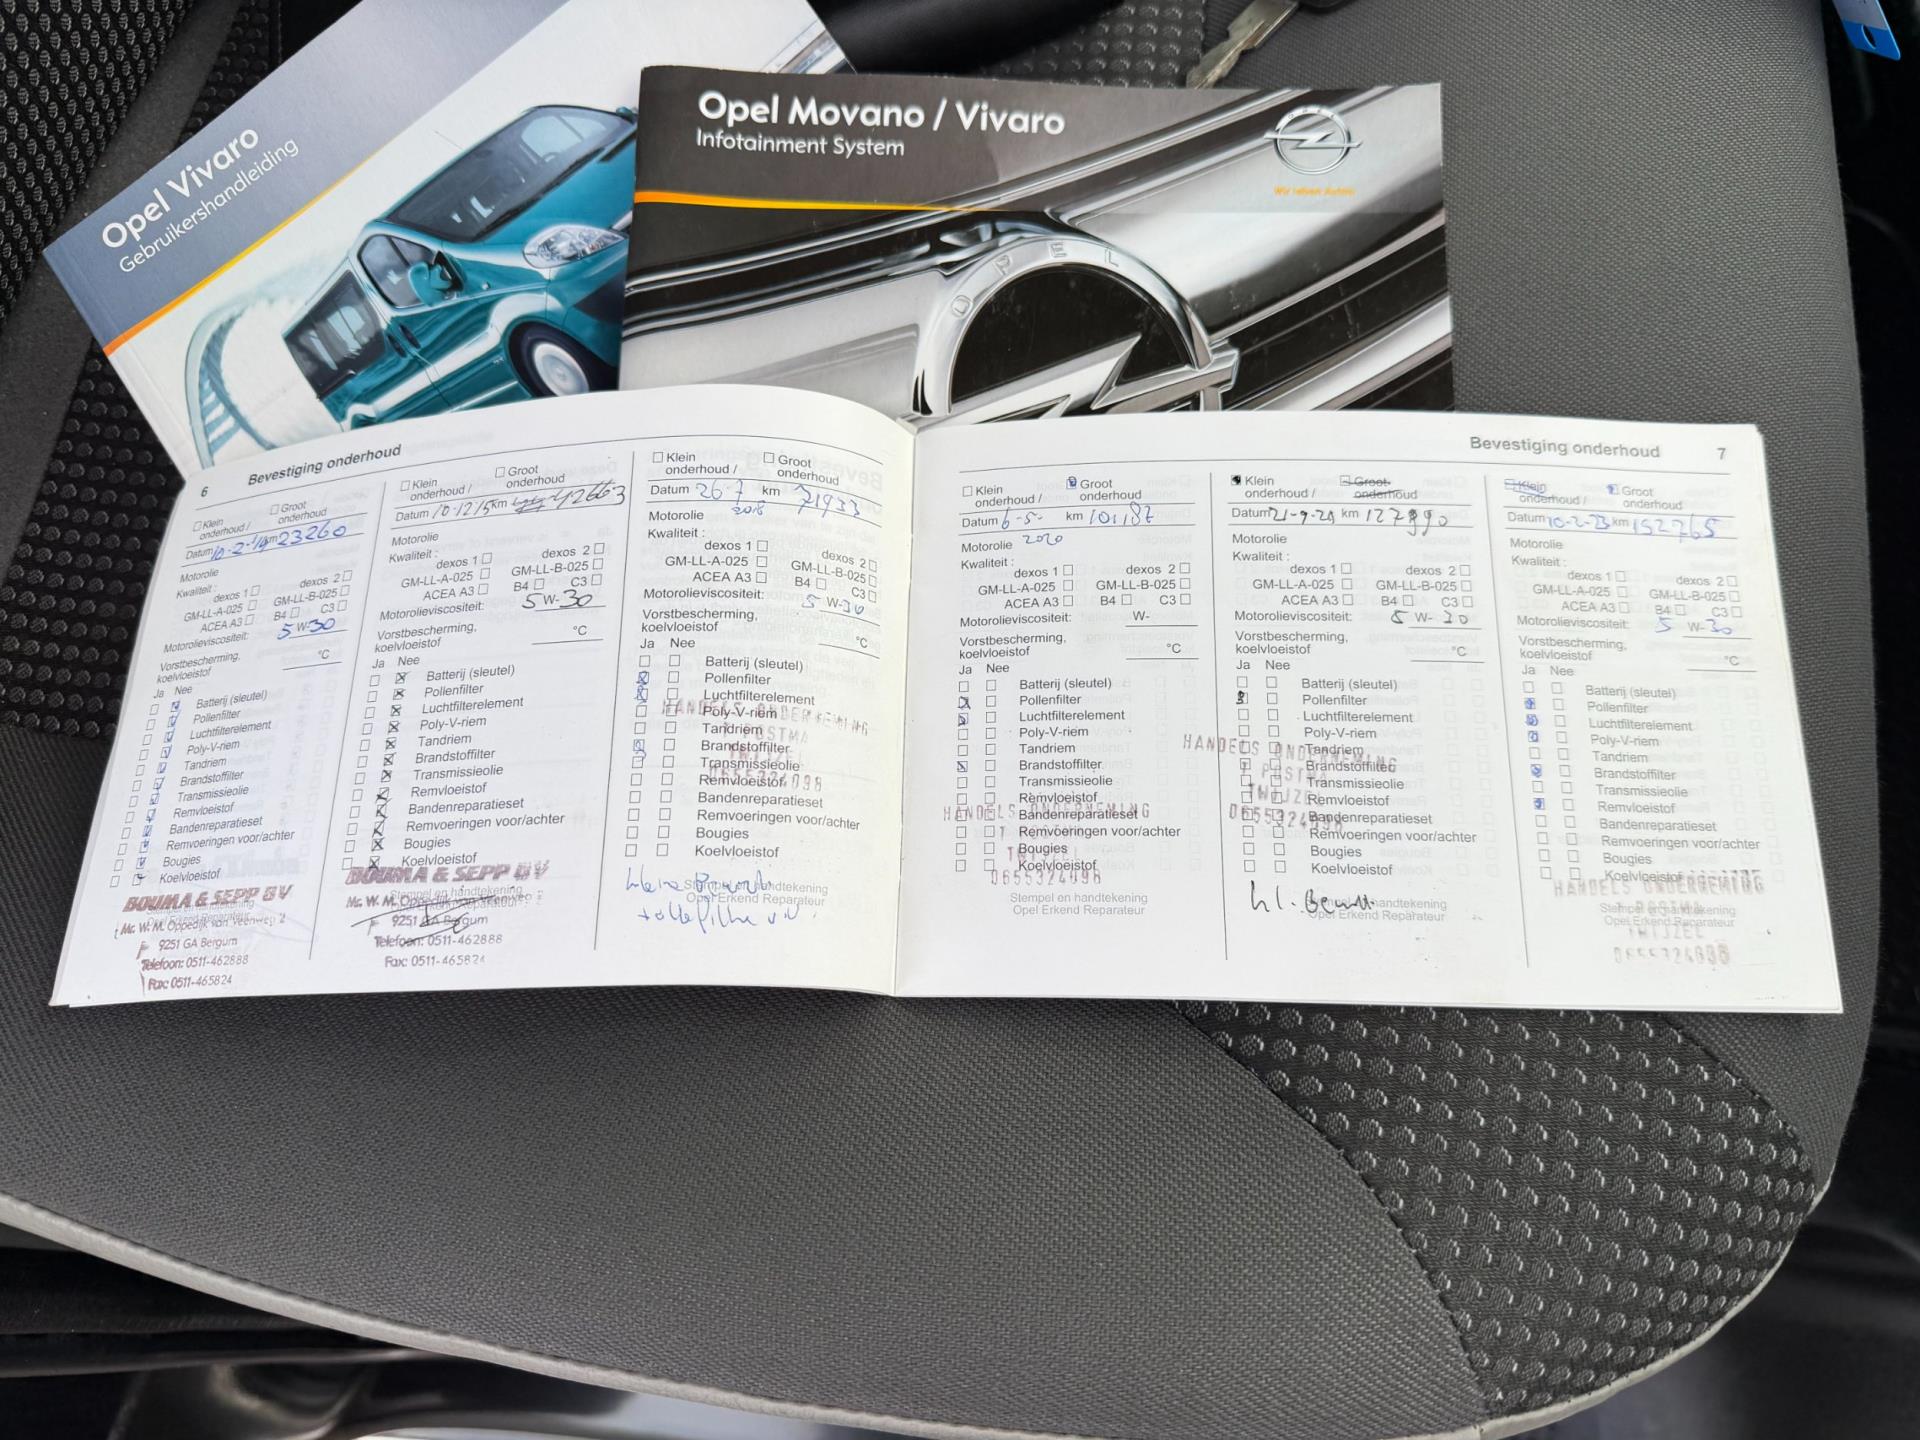 Opel Vivaro
Gebruikershandleiding
Opel Movano / Vivaro
Infotainment System
OPEL
Wir leben Autos
6 Bevestiging onderhoud
Klein onderhoud / Groot onderhoud
Datum 10-2-14 km 23260
Motorolie
Kwaliteit :
dexos 1 dexos 2
GM-LL-A-025 GM-LL-B-025
ACEA A3 B4 C3
Motorolieviscositeit: 5 W-30
Vorstbescherming,
koelvloeistof °C
Ja Nee
Batterij (sleutel)
Pollenfilter
Luchtfilterelement
Poly-V-riem
Tandriem
Brandstoffilter
Transmissieolie
Remvloeistof
Bandenreparatieset
Remvoeringen voor/achter
Bougies
Koelvloeistof
BOUMA & SEPP BV
Mr. W. M. Oppedijk van Veenweg 2
9251 GA Bergum
Telefoon: 0511-462888
Fax: 0511-465824
Klein onderhoud / Groot onderhoud
Datum 10-12-15 km 42663
Motorolie
Kwaliteit :
dexos 1 dexos 2
GM-LL-A-025 GM-LL-B-025
ACEA A3 B4 C3
Motorolieviscositeit: 5 W-30
Vorstbescherming,
koelvloeistof °C
Ja Nee
Batterij (sleutel)
Pollenfilter
Luchtfilterelement
Poly-V-riem
Tandriem
Brandstoffilter
Transmissieolie
Remvloeistof
Bandenreparatieset
Remvoeringen voor/achter
Bougies
Koelvloeistof
BOUMA & SEPP BV
Stempel en handtekening
Mr. W. M. Oppedijk van Veenweg 2
9251 GA Bergum
Telefoon: 0511-462888
Fax: 0511-465824
Klein onderhoud / Groot onderhoud
Datum 26-7 2018 km 71933
Motorolie
Kwaliteit :
dexos 1 dexos 2
GM-LL-A-025 GM-LL-B-025
ACEA A3 B4 C3
Motorolieviscositeit: 5 W-30
Vorstbescherming,
koelvloeistof °C
Ja Nee
Batterij (sleutel)
Pollenfilter
Luchtfilterelement
Poly-V-riem
Tandriem
Brandstoffilter
Transmissieolie
Remvloeistof
Bandenreparatieset
Remvoeringen voor/achter
Bougies
Koelvloeistof
HANDELS ONDERNEMING
T POSTMA
TWIJZEL
0655324098
Stempel en handtekening
Opel Erkend Reparateur
Bevestiging onderhoud 7
Klein onderhoud / Groot onderhoud
Datum 6-5- 2020 km 101187
Motorolie
Kwaliteit :
dexos 1 dexos 2
GM-LL-A-025 GM-LL-B-025
ACEA A3 B4 C3
Motorolieviscositeit: W-
Vorstbescherming,
koelvloeistof °C
Ja Nee
Batterij (sleutel)
Pollenfilter
Luchtfilterelement
Poly-V-riem
Tandriem
Brandstoffilter
Transmissieolie
Remvloeistof
Bandenreparatieset
Remvoeringen voor/achter
Bougies
Koelvloeistof
HANDELS ONDERNEMING
TWIJZEL
0655324098
Stempel en handtekening
Opel Erkend Reparateur
Klein onderhoud / Groot onderhoud
Datum km
Motorolie
Kwaliteit :
dexos 1 dexos 2
GM-LL-A-025 GM-LL-B-025
ACEA A3 B4 C3
Motorolieviscositeit: 5 W- 30
Vorstbescherming,
koelvloeistof °C
Ja Nee
Batterij (sleutel)
Pollenfilter
Luchtfilterelement
Poly-V-riem
Tandriem
Brandstoffilter
Transmissieolie
Remvloeistof
Bandenreparatieset
Remvoeringen voor/achter
Bougies
Koelvloeistof
HANDELS ONDERNEMING
T POSTMA
TWIJZEL
0655324098
Stempel en handtekening
Opel Erkend Reparateur
Klein onderhoud / Groot onderhoud
Datum 10-2-23 km 152765
Motorolie
Kwaliteit :
dexos 1 dexos 2
GM-LL-A-025 GM-LL-B-025
ACEA A3 B4 C3
Motorolieviscositeit: 5 W-30
Vorstbescherming,
koelvloeistof °C
Ja Nee
Batterij (sleutel)
Pollenfilter
Luchtfilterelement
Poly-V-riem
Tandriem
Brandstoffilter
Transmissieolie
Remvloeistof
Bandenreparatieset
Remvoeringen voor/achter
Bougies
Koelvloeistof
HANDELS ONDERNEMING
T POSTMA
TWIJZEL
0655324098
Stempel en handtekening
Opel Erkend Reparateur